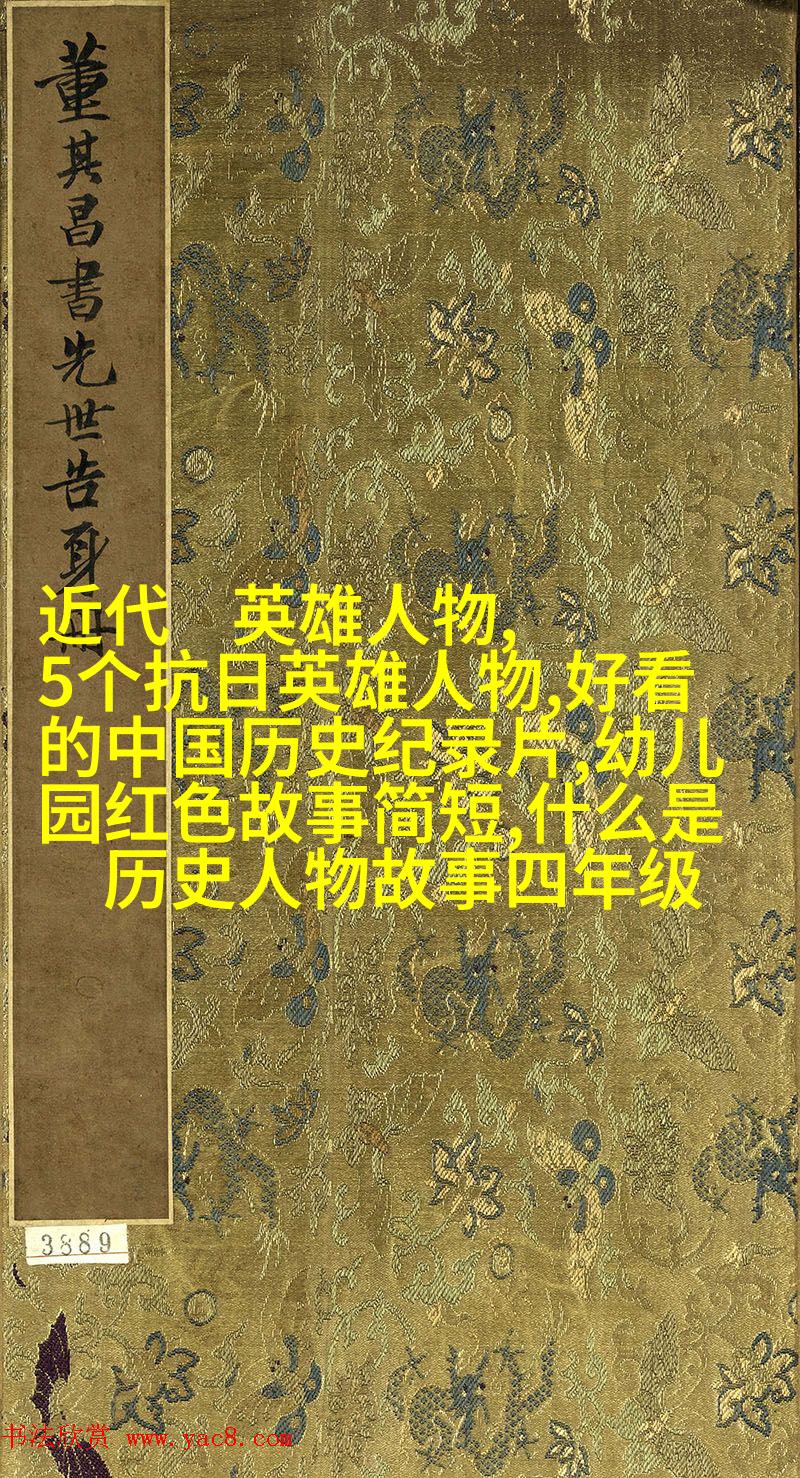 董其昌書先世告身冊
近代 英雄人物,
5个抗日英雄人物,好看
的中国历史纪录片,幼儿
园红色故事简短,什么是
历史人物故事四年级
3889
书法欣赏 www.yac8.com